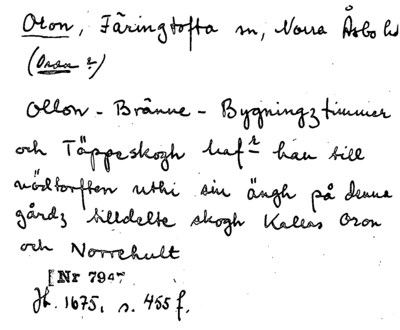 Oron, Färingtofta sn, Norra Åsbo hd
(Orsa ?)
Ollon - Bränne - Bygningztimmer
och Täppeskogh haf.r han till
nödtorfften uthi sin ängh på denna
gårdz tilldelte skogh Kallas Oron
och Norrehult
[Nr 7947
Jb. 1675, s. 455 f.